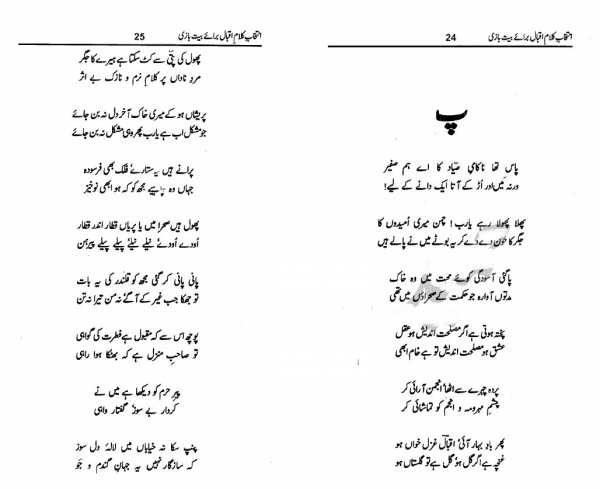 انتخاب کلام اقبال برائے بیت بازی 24
پ
پاس تھا ناکامیِ صیّاد کا اے ہم صفیر
ورنہ میں اور اُڑ کے آتا ایک دانے کے لیے!
پھلا پھولا رہے یارب! چمن میری اُمیدوں کا
جگر کا خون دے دے کر یہ بوٹے میں نے پالے ہیں
پاگئی آسودگی کوئے محبت میں وہ خاک
مدتوں آوارہ جو حکمت کے صحراؤں میں تھی
پختہ ہوتی ہے اگر مصلحت اندیش ہو عقل
عشق ہو مصلحت اندیش تو ہے خام ابھی
پردہ چہرے سے اٹھا، انجمن آرائی کر
چشمِ مہر و مہ و انجم کو تماشائی کر
پھر بادِ بہار آئی، اقبال غزل خواں ہو
غنچہ ہے اگر گل ہو، گل ہے تو گلستاں ہو
انتخاب کلام اقبال برائے بیت بازی 25
پھول کی پتّی سے کٹ سکتا ہے ہیرے کا جگر
مردِ ناداں پر کلامِ نرم و نازک بے اثر
پریشاں ہو کے میری خاک آخر دل نہ بن جائے
جو مشکل اب ہے یارب پھر وہی مشکل نہ بن جائے
پرانے ہیں یہ ستارے فلک بھی فرسودہ
جہاں وہ چاہیے مجھ کو کہ ہو ابھی نوخیز
پھول ہیں صحرا میں یا پریاں قطار اندر قطار
اُودے اُودے نیلے نیلے پیلے پیلے پیرہن
پانی پانی کر گئی مجھ کو قلندر کی یہ بات
تو جھکا جب غیر کے آگے نہ من تیرا نہ تن
پوچھ اس سے کہ مقبول ہے فطرت کی گواہی
تو صاحبِ منزل ہے کہ بھٹکا ہوا راہی
پیرِ حرم کو دیکھا ہے میں نے
کردار بے سوز گفتار واہی
پنپ سکا نہ خیاباں میں لالۂ دل سوز
کہ سازگار نہیں یہ جہانِ گندم و جَو